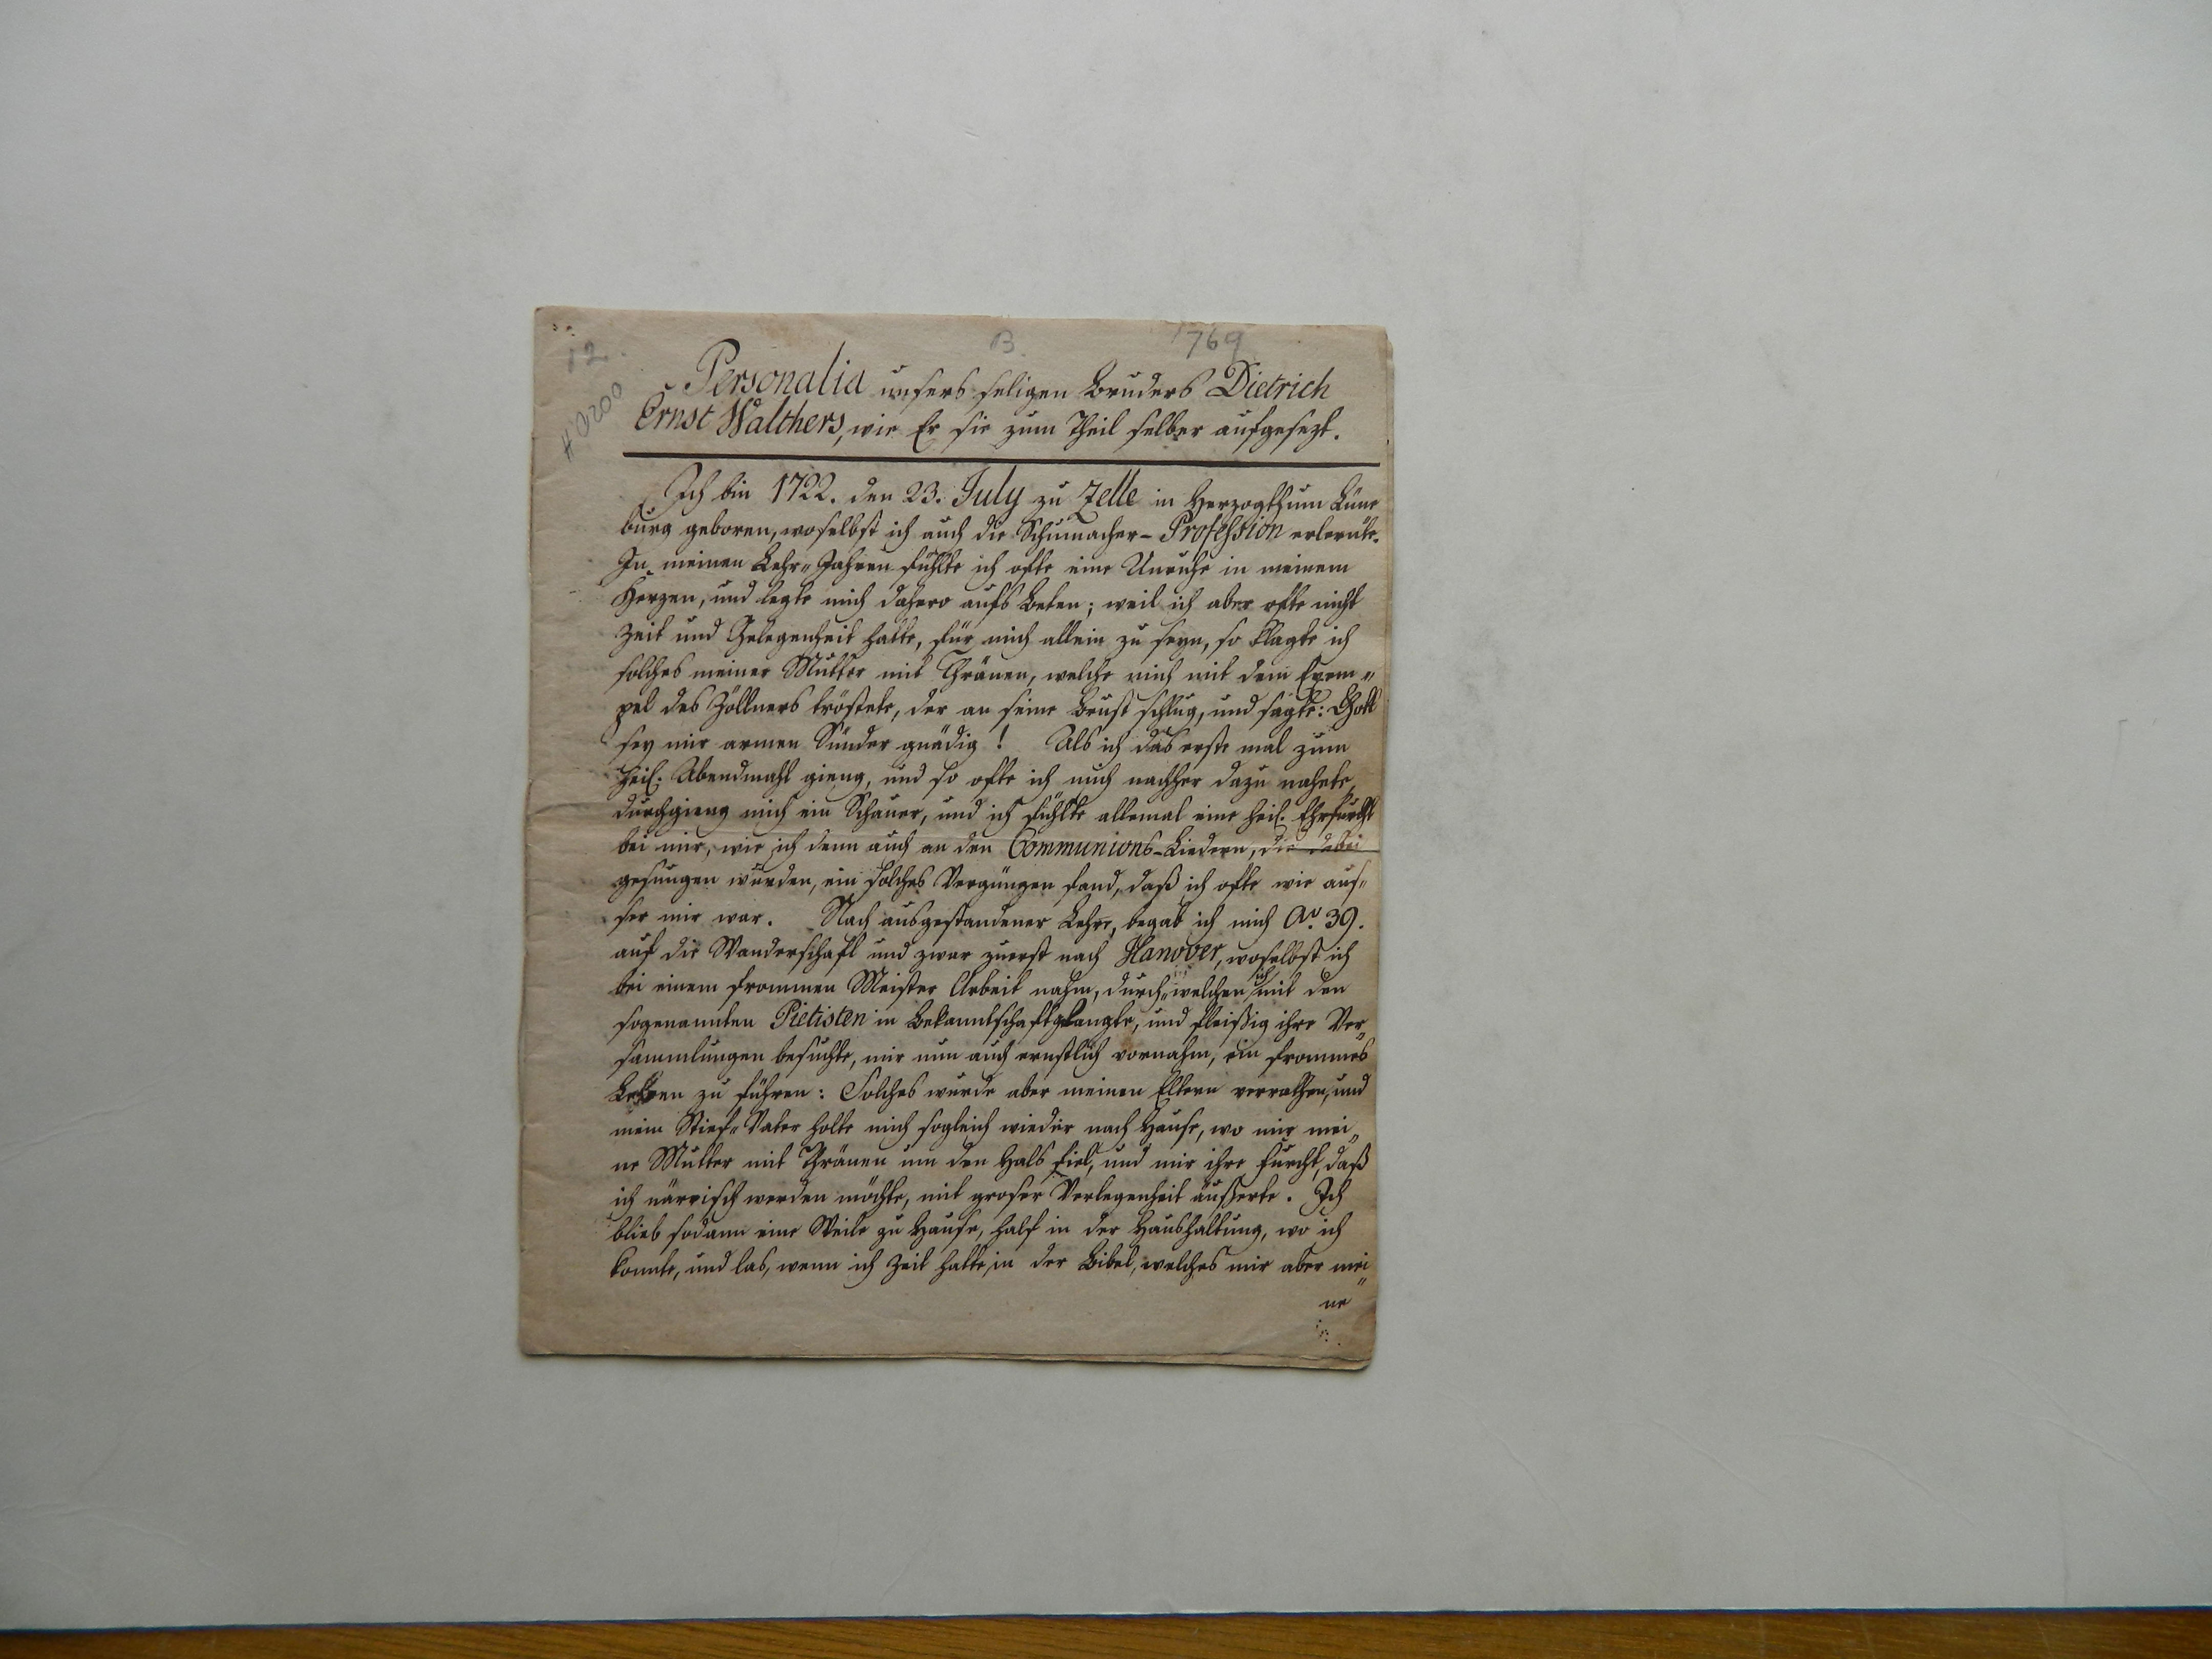 12.
B.
1769
Personalia unsers seligen Bruders Dietrich
Ernst Walthers, wie Er sie zum Theil selber aufgesezt.
Ich bin 1722. den 23. July zu Zelle in Herzogthum Lüne
burg geboren, woselbst ich auch die Schumacher-Profession erlernte.
In meinen Lehr-Jahren fühlte ich ofte eine Unruhe in meinem
Herzen, und legte mich dahero aufs Beten; weil ich aber ofte nicht
Zeit und Gelegenheit hatte, für mich allein zu seyn, so klagte ich
solches meiner Mutter mit Thränen, welche mich mit dem Exem-
pel des Zöllners tröstete, der an seine Brust schlug, und sagte: Gott
sey mir armen Sünder gnädig! Als ich das erste mal zum
heil. Abendmahl gieng, und so ofte ich auch nachher dazu nahete,
durchgieng mich ein Schauer, und ich fühlte allemal eine heil. Ehrfurcht
bei mir, wie ich denn auch an den Communions-Liedern, die dabei
gesungen wurden, ein solches Vergnügen fand, daß ich ofte wie aus-
ser mir war. Nach ausgestandener Lehre, begab ich mich Ao. 39.
auf die Wanderschaft und zwar zuerst nach Hanover, woselbst ich
bei einem frommen Meister Arbeit nahm, durch welchen ich mit den
sogenannten Pietisten in Bekanntschaft gelangte, und fleißig ihre Ver-
sammlungen besuchte, mir nun auch ernstlich vornahm, ein frommes
Leben zu führen: Solches wurde aber meinen Eltern verrathen, und
mein Stief-Vater holte mich sogleich wieder nach Hause, wo mir mei-
ne Mutter mit Thränen um den Hals fiel, und mir ihre Furcht, daß
ich närrisch werden möchte, mit groser Verlegenheit äußerte. Ich
blieb sodann eine Weile zu Hause, half in der Haushaltung, wo ich
konnte, und las, wenn ich Zeit hatte, in der Bibel, welches mir aber mei-
ne